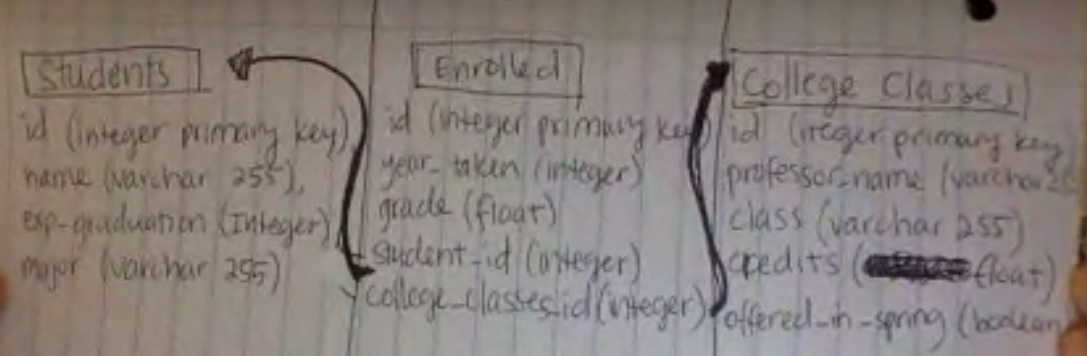 Students
id (integer primary key)
name (varchar 255),
exp-graduation (Integer)
major (varchar 255)
Enrolled
id (integer primary key)
year_taken (integer)
grade (float)
student_id (integer)
college_classes_id (integer)
College Classes
id (integer primary key
professor_name (varchar
class (varchar 255)
credits (float)
offered_in_spring (boolean